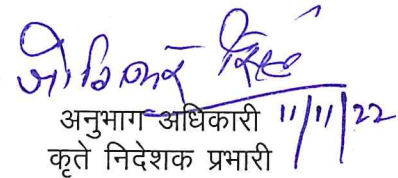 अनुभाग अधिकारी 11/11/22
कृते निदेशक प्रभारी